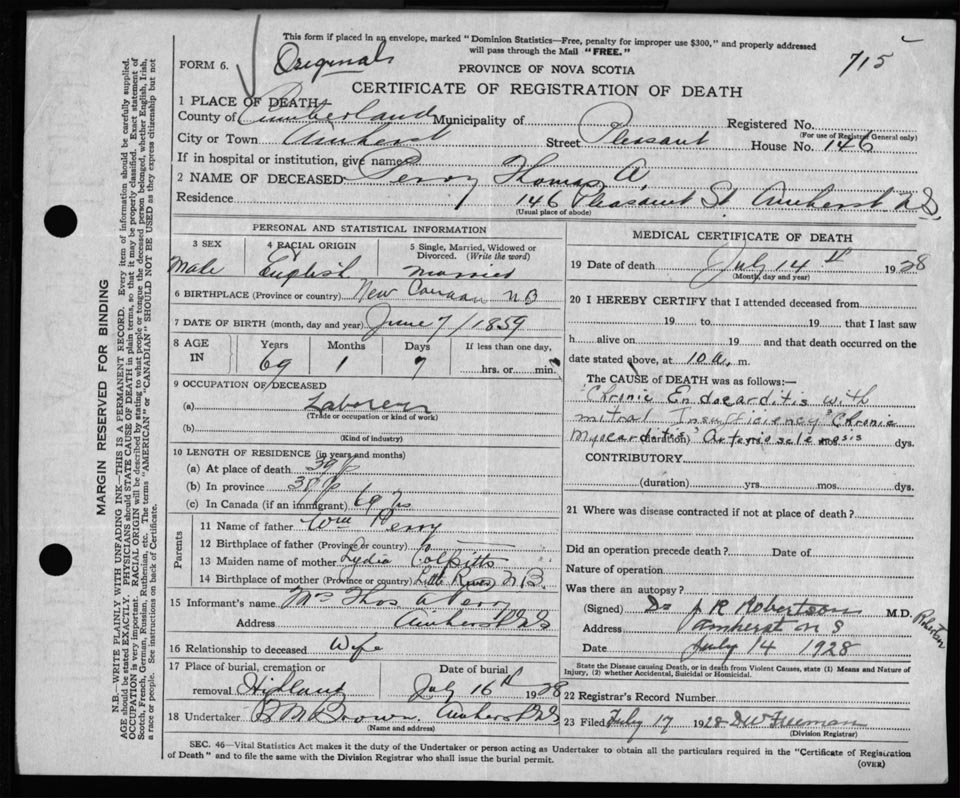 This form if placed in an envelope, marked "Dominion Statistics—Free, penalty for improper use $300," and properly addressed
will pass through the Mail "FREE."
FORM 6. Originals
715
PROVINCE OF NOVA SCOTIA
CERTIFICATE OF REGISTRATION OF DEATH
1 PLACE OF DEATH
County of Cumberland Municipality of Registered No.
(For use of Registrar General only)
City or Town Amherst Street Pleasant House No. 146
If in hospital or institution, give name
2 NAME OF DECEASED Perry Thomas A.
Residence 146 Pleasant St. Amherst N S.
(Usual place of abode)
PERSONAL AND STATISTICAL INFORMATION
3 SEX 4 RACIAL ORIGIN 5 Single, Married, Widowed or Divorced. (Write the word)
Male English Married
6 BIRTHPLACE (Province or country) New Canaan N B
7 DATE OF BIRTH (month, day and year) June 7/1859
8 AGE IN Years Months Days If less than one day,
69 1 7 hrs. or min.
9 OCCUPATION OF DECEASED
(a) Laborer
(Trade or occupation or kind of work)
(b)
(Kind of industry)
10 LENGTH OF RESIDENCE (in years and months)
(a) At place of death 39
(b) In province
(c) In Canada (if an immigrant) 69 yrs
Parents
11 Name of father Wm Perry
12 Birthplace of father (Province or country)
13 Maiden name of mother Lydia Colpitts
14 Birthplace of mother (Province or country) Little River N B.
15 Informant's name Mrs Thos A Perry
Address Amherst NS
16 Relationship to deceased Wife
17 Place of burial, cremation or removal. Highland
Date of burial July 16th 1928
18 Undertaker B M Brown. Amherst NS
(Name and address)
MEDICAL CERTIFICATE OF DEATH
19 Date of death July 14th 1928
(Month, day and year)
20 I HEREBY CERTIFY that I attended deceased from
19 to 19 that I last saw
h alive on 19 and that death occurred on the
date stated above, at 10 a. m.
The CAUSE of DEATH was as follows:—
Chronic Endocarditis with
mitral Insufficiency Chronic
Myocarditis Arteriosclerosis dys.
CONTRIBUTORY
(duration) yrs. mos. dys.
21 Where was disease contracted if not at place of death?
Did an operation precede death? Date of
Nature of operation
Was there an autopsy?
(Signed) Dr J R Robertson M.D. Robertson
Address Amherst N S
Date July 14 1928
State the Disease causing Death, or in death from Violent Causes, state (1) Means and Nature of
Injury, (2) whether Accidental, Suicidal or Homicidal.
22 Registrar's Record Number
23 Filed July 17 1928 D W Freeman
(Division Registrar)
SEC. 46—Vital Statistics Act makes it the duty of the Undertaker or person acting as Undertaker to obtain all the particulars required in the "Certificate of Registration
of Death" and to file the same with the Division Registrar who shall issue the burial permit.
(OVER)
MARGIN RESERVED FOR BINDING
N.B.—WRITE PLAINLY WITH UNFADING INK—THIS IS A PERMANENT RECORD. Every item of information should be carefully supplied.
AGE should be stated EXACTLY. PHYSICIANS should STATE CAUSE OF DEATH in plain terms, so that it may be properly classified. Exact statement of
OCCUPATION is very important. RACIAL ORIGIN will be described by stating to what people or tongue the deceased person belonged, whether English, Irish,
Scotch, French, German, Russian, Ruthenian, etc. The terms "AMERICAN" or "CANADIAN" SHOULD NOT BE USED as they express citizenship but not
a race or people. See instructions on back of Certificate.